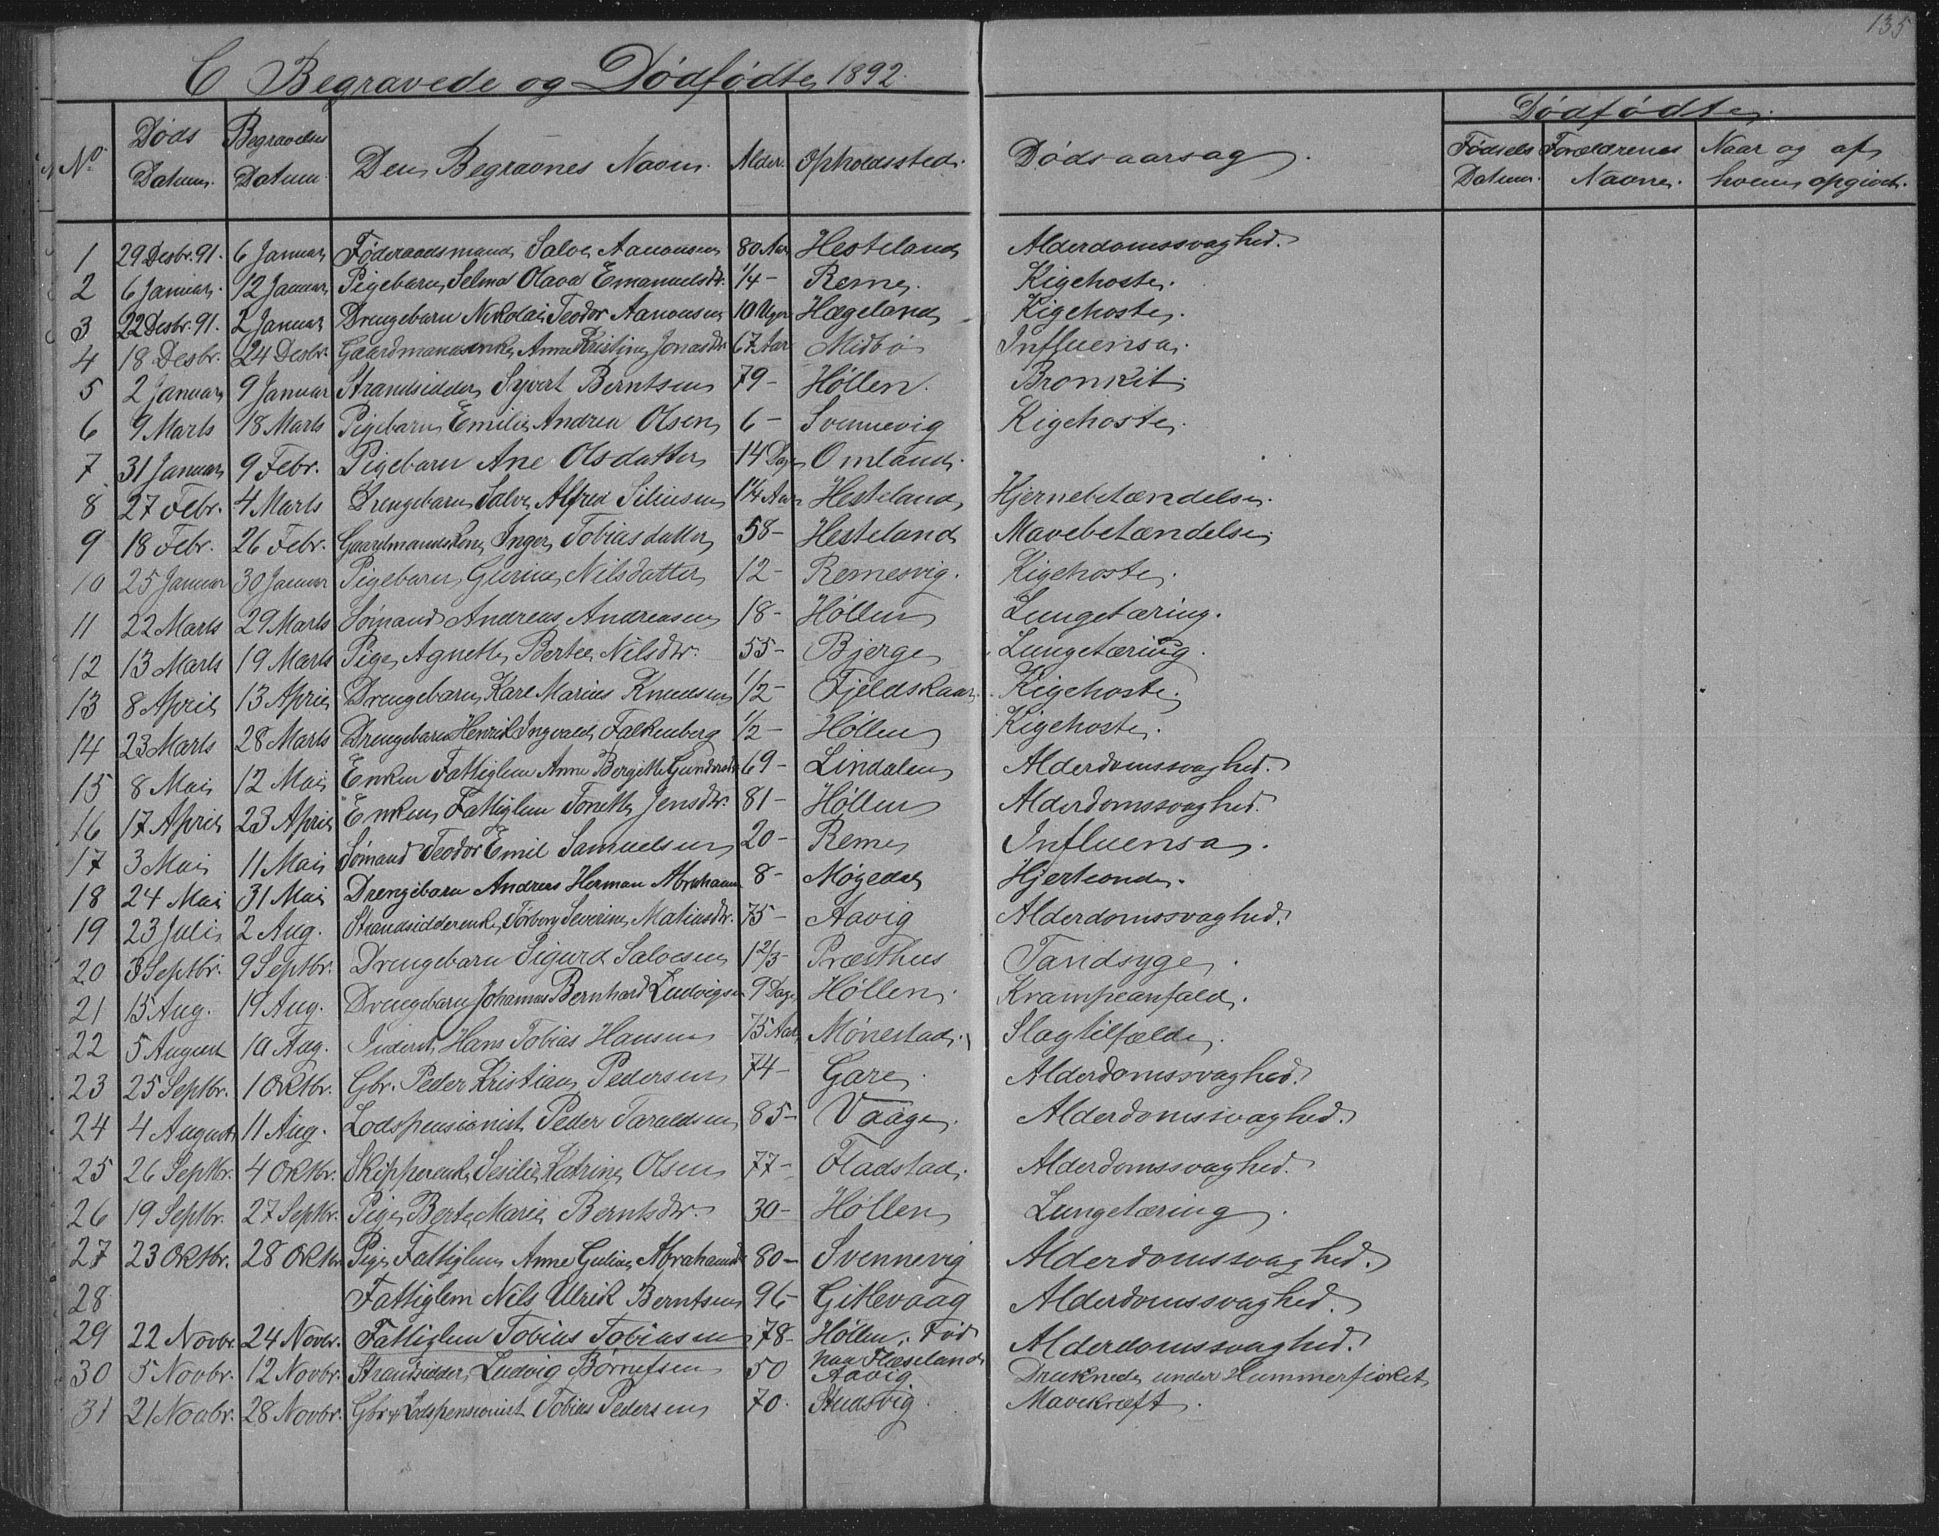 135
C Begravede og Dødfødte 1892.
No. Døds Datum. Begravelses Datum. Den Begravnes Navn. Alder. Opholdssted. Dødsaarsag. Dødfødte.
Fødsels Datum. Forældrenes Navne. Naar og af hvem opgivet.
1 29 Desbr. 91. 6 Januar Føderaadsmand Salve Aanonsen 80 Aar Hesteland Alderdomssvaghed.
2 6 Januar. 12 Januar Pigebarn Selma Olava Emanuelsdtr. 1/4 - Reme. Kigehoste.
3 22 Desbr. 91. 2 Januar Drengebarn Nikolai Teodor Aanonsen 10 Uger Hægeland Kigehoste.
4 18 Desbr. 24 Desbr. Gaardmandsenke Anne Kristine Jonasdtr. 67 Aar Midbø Influensa.
5 2 Januar 9 Januar Strandsidder Syvert Berntsen 79 - Høllen. Bronkit.
6 9 Marts 18 Marts Pigebarn Emilie Andrea Olsen 6 - Svennevig Kigehoste.
7 31 Januar 9 Febr. Pigebarn Ane Olsdatter 14 Dage Omland.
8 27 Febr. 4 Marts Drengebarn Salve Alfred Siliusen 1 1/4 Aar Hesteland Hjernebetændelse.
9 18 Febr. 26 Febr. Gaardmandskone Inger Tobiasdatter 58 - Hesteland Mavebetændelse.
10 25 Januar 30 Januar Pigebarn Gurine Nilsdatter 12 - Remesvig. Kigehoste.
11 22 Marts 29 Marts Sømand Andreas Andreasen 18 - Høllen Lungetæring.
12 13 Marts 19 Marts Pige Agnette Berte Nilsdtr. 55 - Bjerge Lungetæring.
13 8 April 13 April Drengebarn Kare Marius Knudsen 1/2 - Fjeldskaar. Kigehoste.
14 23 Marts 28 Marts Drengebarn Henrik Ingvald Falkenberg 1/2 - Høllen Kigehoste.
15 8 Mai 12 Mai Enken Fattiglem Anne Bergitte Gundersdtr 69 - Lindalen Alderdomssvaghed.
16 17 April 23 April Enken Fattiglem Tonette Jensdtr. 81 - Høllen Alderdomssvaghed.
17 3 Mai 11 Mai Sømand Teodor Emil Samuelsen 20 - Reme Influensa.
18 24 Mai 31 Mai Drengebarn Andreas Herman Abrahams 8 - Møgedal Hjerteonde.
19 23 Juli 2 Aug. Strandsidderenke Torborg Severine Matiasdtr. 75 - Aavig Alderdomssvaghed.
20 3 Septbr. 9 Septbr. Drengebarn Sigurd Salvesen 1 2/3 - Præsthus Tandsyge.
21 15 Aug. 19 Aug. Drengebarn Johannes Bernhard Ludvigsen 9 Dage Høllen. Krampeanfald.
22 5 August 10 Aug. Inderst Hans Tobias Hansen 75 Aar Mønestad. Slagtilfælde.
23 25 Septbr. 1 Oktbr. Gbr. Peder Kristian Pedersen 74 - Gare. Alderdomssvaghed.
24 4 August 11 Aug. Lodspensionist Peder Taraldsen 85 - Vaage. Alderdomssvaghed.
25 26 Septbr. 4 Oktbr. Skipperenke Sesilie Katrine Olsen 77 - Fladstad. Alderdomssvaghed.
26 19 Septbr. 27 Septbr. Pige Berte Marie Berntsdtr. 30 - Høllen Lungetæring.
27 23 Oktbr. 28 Oktbr Pige Fattiglem Anne Guline Abrahamsdr 80 - Svennevig Alderdomssvaghed.
28 Fattiglem Nils Ulrik Berntsen 96 - Gitlevaag Alderdomssvaghed.
29 22 Novbr. 24 Novbr. Fattiglem Tobias Tobiasen 78 - Høllen. Fød paa Flæseland Alderdomssvaghed.
30 5 Novbr. 12 Novbr. Strandsidder Ludvig Børufsen 50 Aavig Druknede under Hummerfisket
31 21 Novbr. 28 Novbr. Gbr & Lodspensionist Tobias Pedersen 70. Studsvig. Mavekræft.